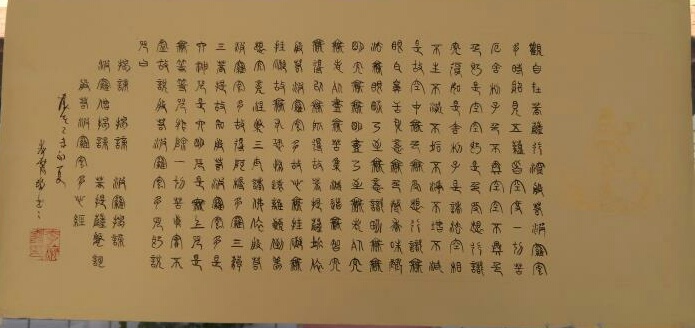 觀自在菩薩行深般若波羅蜜
多時照見五蘊皆空度一切苦
厄舍利子色不異空空不異色
色即是空空即是色受想行識
亦復如是舍利子是諸法空相
不生不滅不垢不淨不增不減
是故空中無色無受想行識無
眼耳鼻舌身意無色聲香味觸
法無眼界乃至無意識界無無
明亦無無明盡乃至無老死亦
無老死盡無苦集滅道無智亦
無得以無所得故菩提薩埵依
般若波羅蜜多故心無罣礙無
罣礙故無有恐怖遠離顛倒夢
想究竟涅槃三世諸佛依般若
波羅蜜多故得阿耨多羅三藐
三菩提故知般若波羅蜜多是
大神咒是大明咒是無上咒是
無等等咒能除一切苦真實不
虛故說般若波羅蜜多咒即說
咒曰
揭諦 揭諦 波羅揭諦
波羅僧揭諦 菩提薩婆訶
般若波羅蜜多心經
乙未初夏